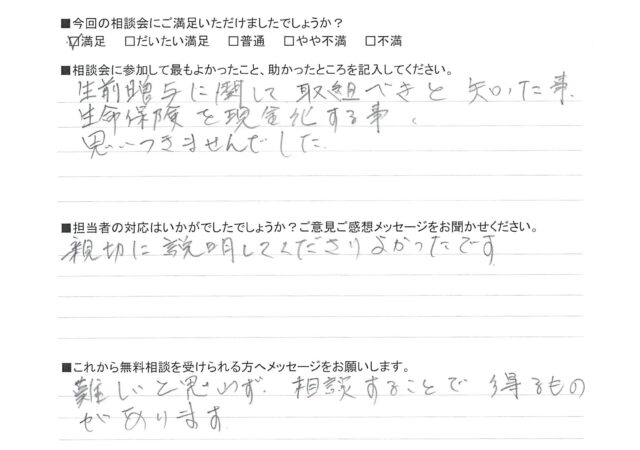 ■今回の相談会にご満足いただけましたでしょうか？
☑満足 □だいたい満足 □普通 □やや不満 □不満
■相談会に参加して最もよかったこと、助かったところを記入してください。
生前贈与に関して取組べきと知った事.
生命保険を現金化する事、
思いつきませんでした.
■担当者の対応はいかがでしたでしょうか？ご意見ご感想メッセージをお聞かせください。
親切に説明してくださりよかったです
■これから無料相談を受けられる方へメッセージをお願いします。
難しいと思わず.相談することで得るもの
があります